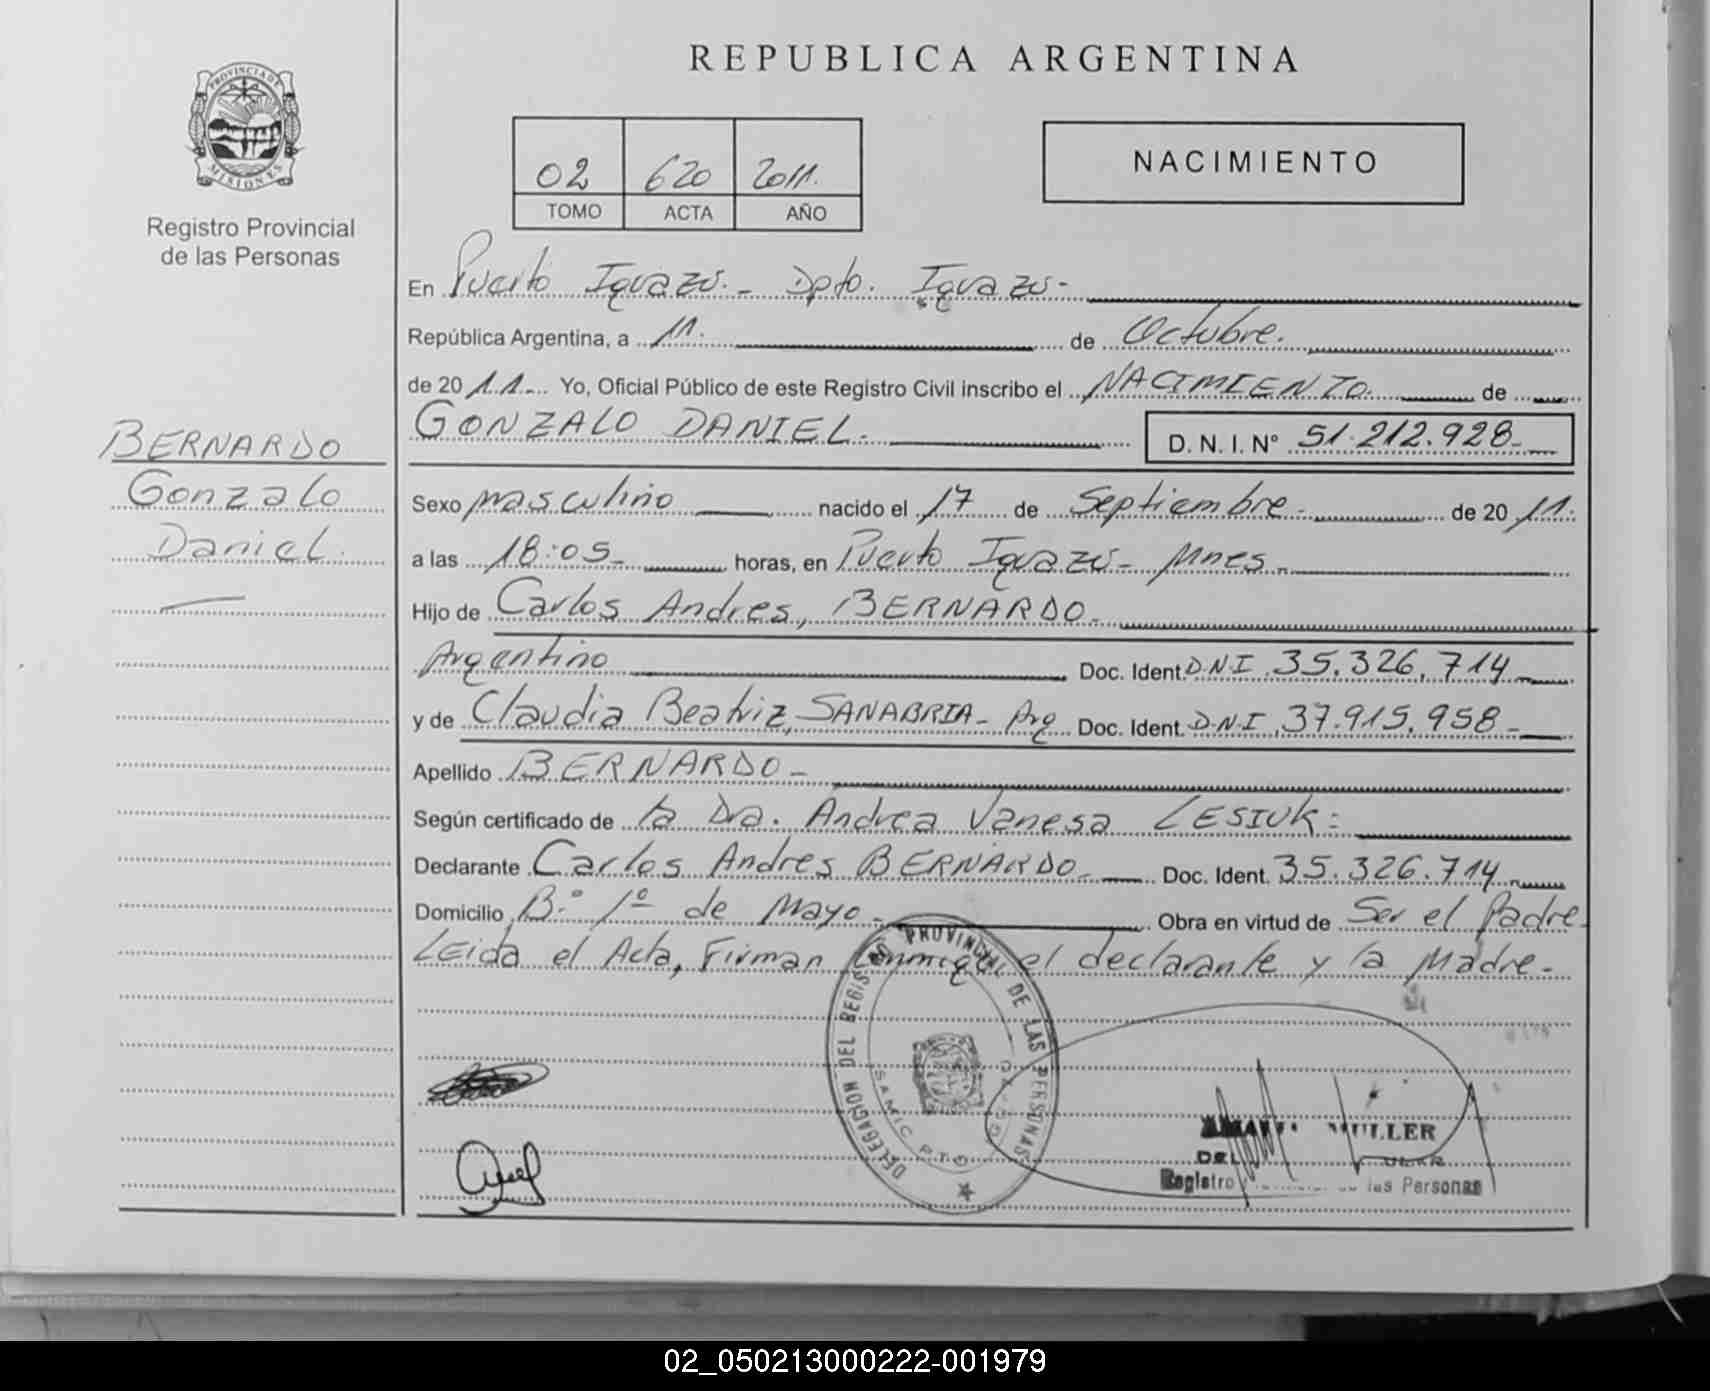 REPUBLICA ARGENTINA
PROVINCIA DE
MISIONES
Registro Provincial
de las Personas
02 620 2011.
TOMO ACTA AÑO
NACIMIENTO
En Puerto Iguazú.- Dpto. Iguazú-
República Argentina, a 11. de Octubre.
de 2011.- Yo, Oficial Público de este Registro Civil inscribo el NACIMIENTO. de
GONZALO DANIEL.- D. N. I. Nº 51.212.928-
BERNARDO
Gonzalo
Daniel.
Sexo masculino nacido el 17 de Septiembre.- de 2011.
a las 18:05- horas, en Puerto Iguazú- Mnes-
Hijo de Carlos Andres, BERNARDO-
Argentino Doc. Ident. D.N.I. 35.326.714
y de Claudia Beatriz, SANABRIA- Arg Doc. Ident. D.N.I. 37.915.958-
Apellido BERNARDO-
Según certificado de la Dra. Andrea Vanesa LESIUK:
Declarante Carlos Andres BERNARDO- Doc. Ident. 35.326.714
Domicilio B.º 1º de Mayo- Obra en virtud de Ser el Padre-
LEida el Acta, Firman Conmigo el declarante y la Madre-
DELEGACION DEL REGISTRO PROVINCIAL DE LAS PERSONAS
SAMIC PTO
MULLER
Registro las Personas
02_050213000222-001979